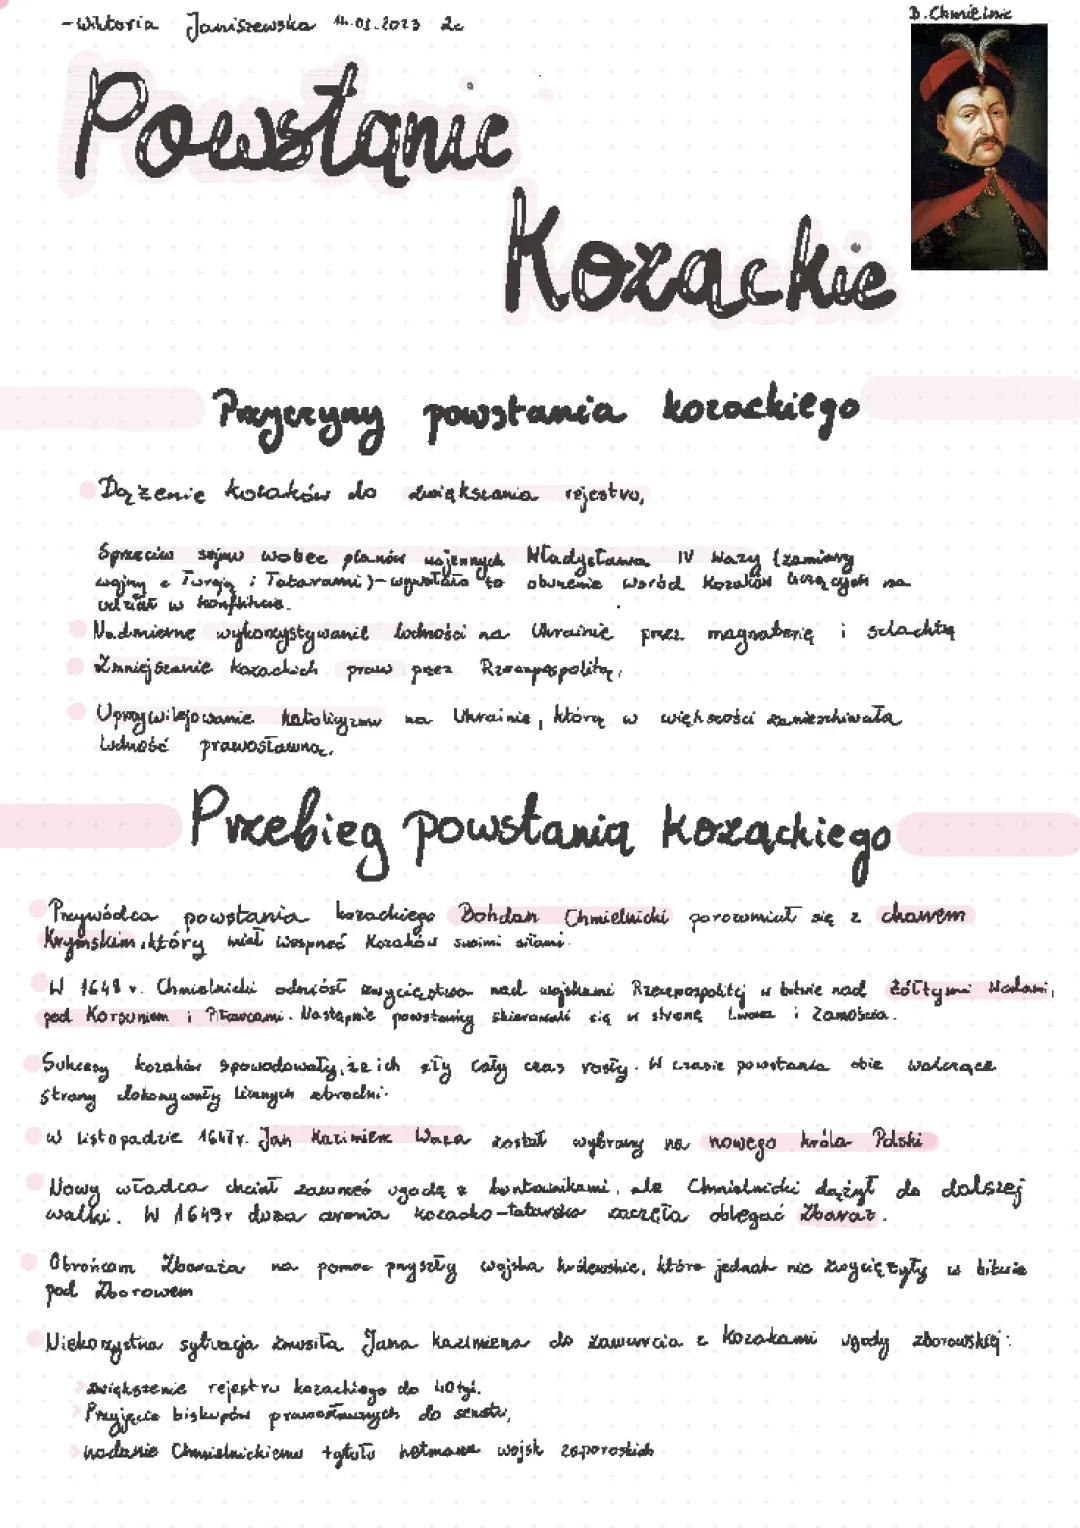 -Wiktoria Janiszewska 2023 2c
B. Chmielnic
Powstanie
Kozackie
Przyczyny powstania kozackiego
Dążenie kozaków do zwiększania rejestru,
Sprzeciw sejmu wobec planów wojennych Władysława IV Wazy (zamiary
wojny z Turcją i Tatarami)-wywołało to oburzenie wśród Kozaków liczących na
udział w konflikcie.
Nadmierne wykorzystywanie ludności na Ukrainie przez magnaterię i szlachtę
Zmniejszanie kozackich praw przez Rzeczpospolitą,
Uprzywilejowanie katolicyzmu na Ukrainie, którą w większości zamieszkiwała
ludność prawosławna.
Przebieg powstania kozackiego
Przywódca powstania kozackiego Bohdan Chmielnicki porozumiał się z chanem
Krymskim, który miał wesprzeć Kozaków swoimi siłami.
W 1648 r. Chmielnicki odniósł zwycięstwo nad wojskami Rzeczpospolitej w bitwie nad Żółtymi Wodami,
pod Korsuniem i Piławcami. Następnie powstańcy skierowali się w stronę Lwowa i Zamościa.
Sukcesy kozaków spowodowały, że ich siły cały czas rosły. W czasie powstania obie walczące
strony dokonywały licznych zbrodni.
W listopadzie r. Jan Kazimierz Waza został wybrany na nowego króla Polski
Nowy władca chciał zawrzeć ugodę z buntownikami, ale Chmielnicki dążył do dalszej
walki. W 1649r duża armia kozacko-tatarska zaczęła oblegać Zbaraż.
Obrońcom Zbaraża na pomoc przyszły wojska królewskie, które jednak nie zwyciężyły w bitwie
pod Zborowem
Niekorzystna sytuacja zmusiła Jana Kazimierza do zawarcia z Kozakami ugody zborowskiej:
zwiększenie rejestru kozackiego do 40tyś.
Przyjęcie biskupów prawosławnych do senatu,
nadanie Chmielnickiemu tytułu hetmana wojsk zaporoskich